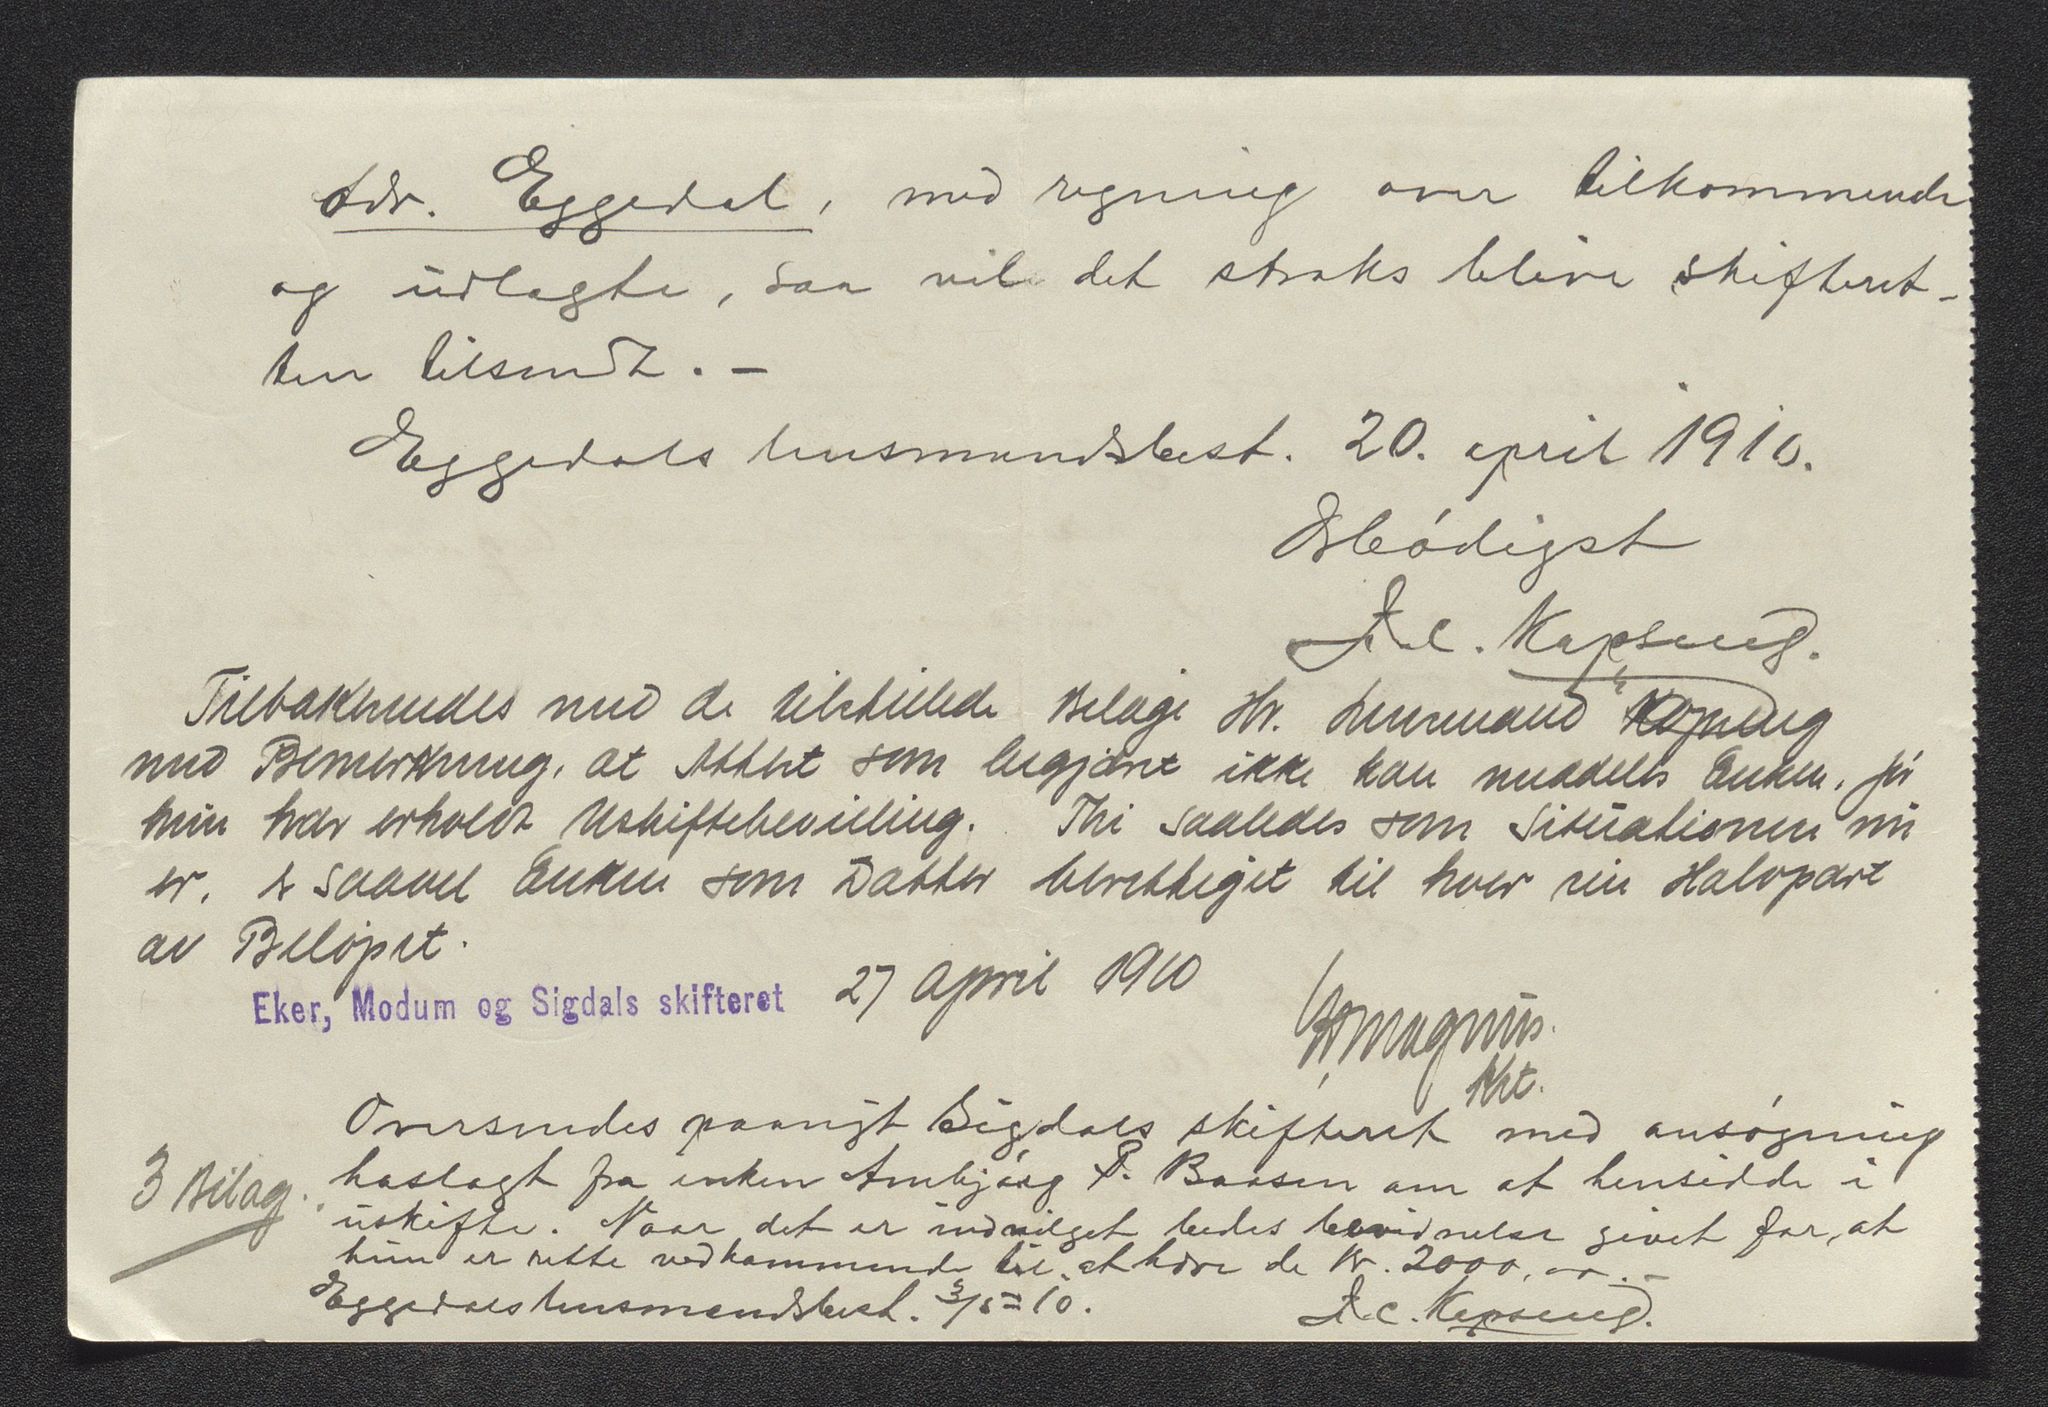 adr. Eggedal, med regning over tilkommende
og udlagte, saa vil det straks blive skifteret-
ten tilsendt. –
Eggedals lensmandsbest. 20. april 1910.
Ærbödigst
A. C. Kopseng.
Tilbakesendes med de tilstillede Bilage Hr. Lensmand Kopseng
med Bemerkning, at Attest som begjært ikke kan meddeles Enken, før
hun har erholdt Uskiftebevilling. Thi saaledes som Situationen nu
er, er saavel Enken som Datter berettiget til hver sin Halvpart
av Beløpet.
Eker, Modum og Sigdals skifteret 27 April 1910
Magnus.
Kst.
Oversendes paanyt Sigdals skifteret med ansøgning
3 Bilag. haslagt fra enken Ambjørg P. Baasen om at hensidde i
uskifte. Naar det er indvilget bedes bevidnelse givet for, at
hun er rette vedkommende til at hæve de Kr. 2000,00. –
Eggedals lensmandsbest. 3/5 = 10. A. C. Kopseng.